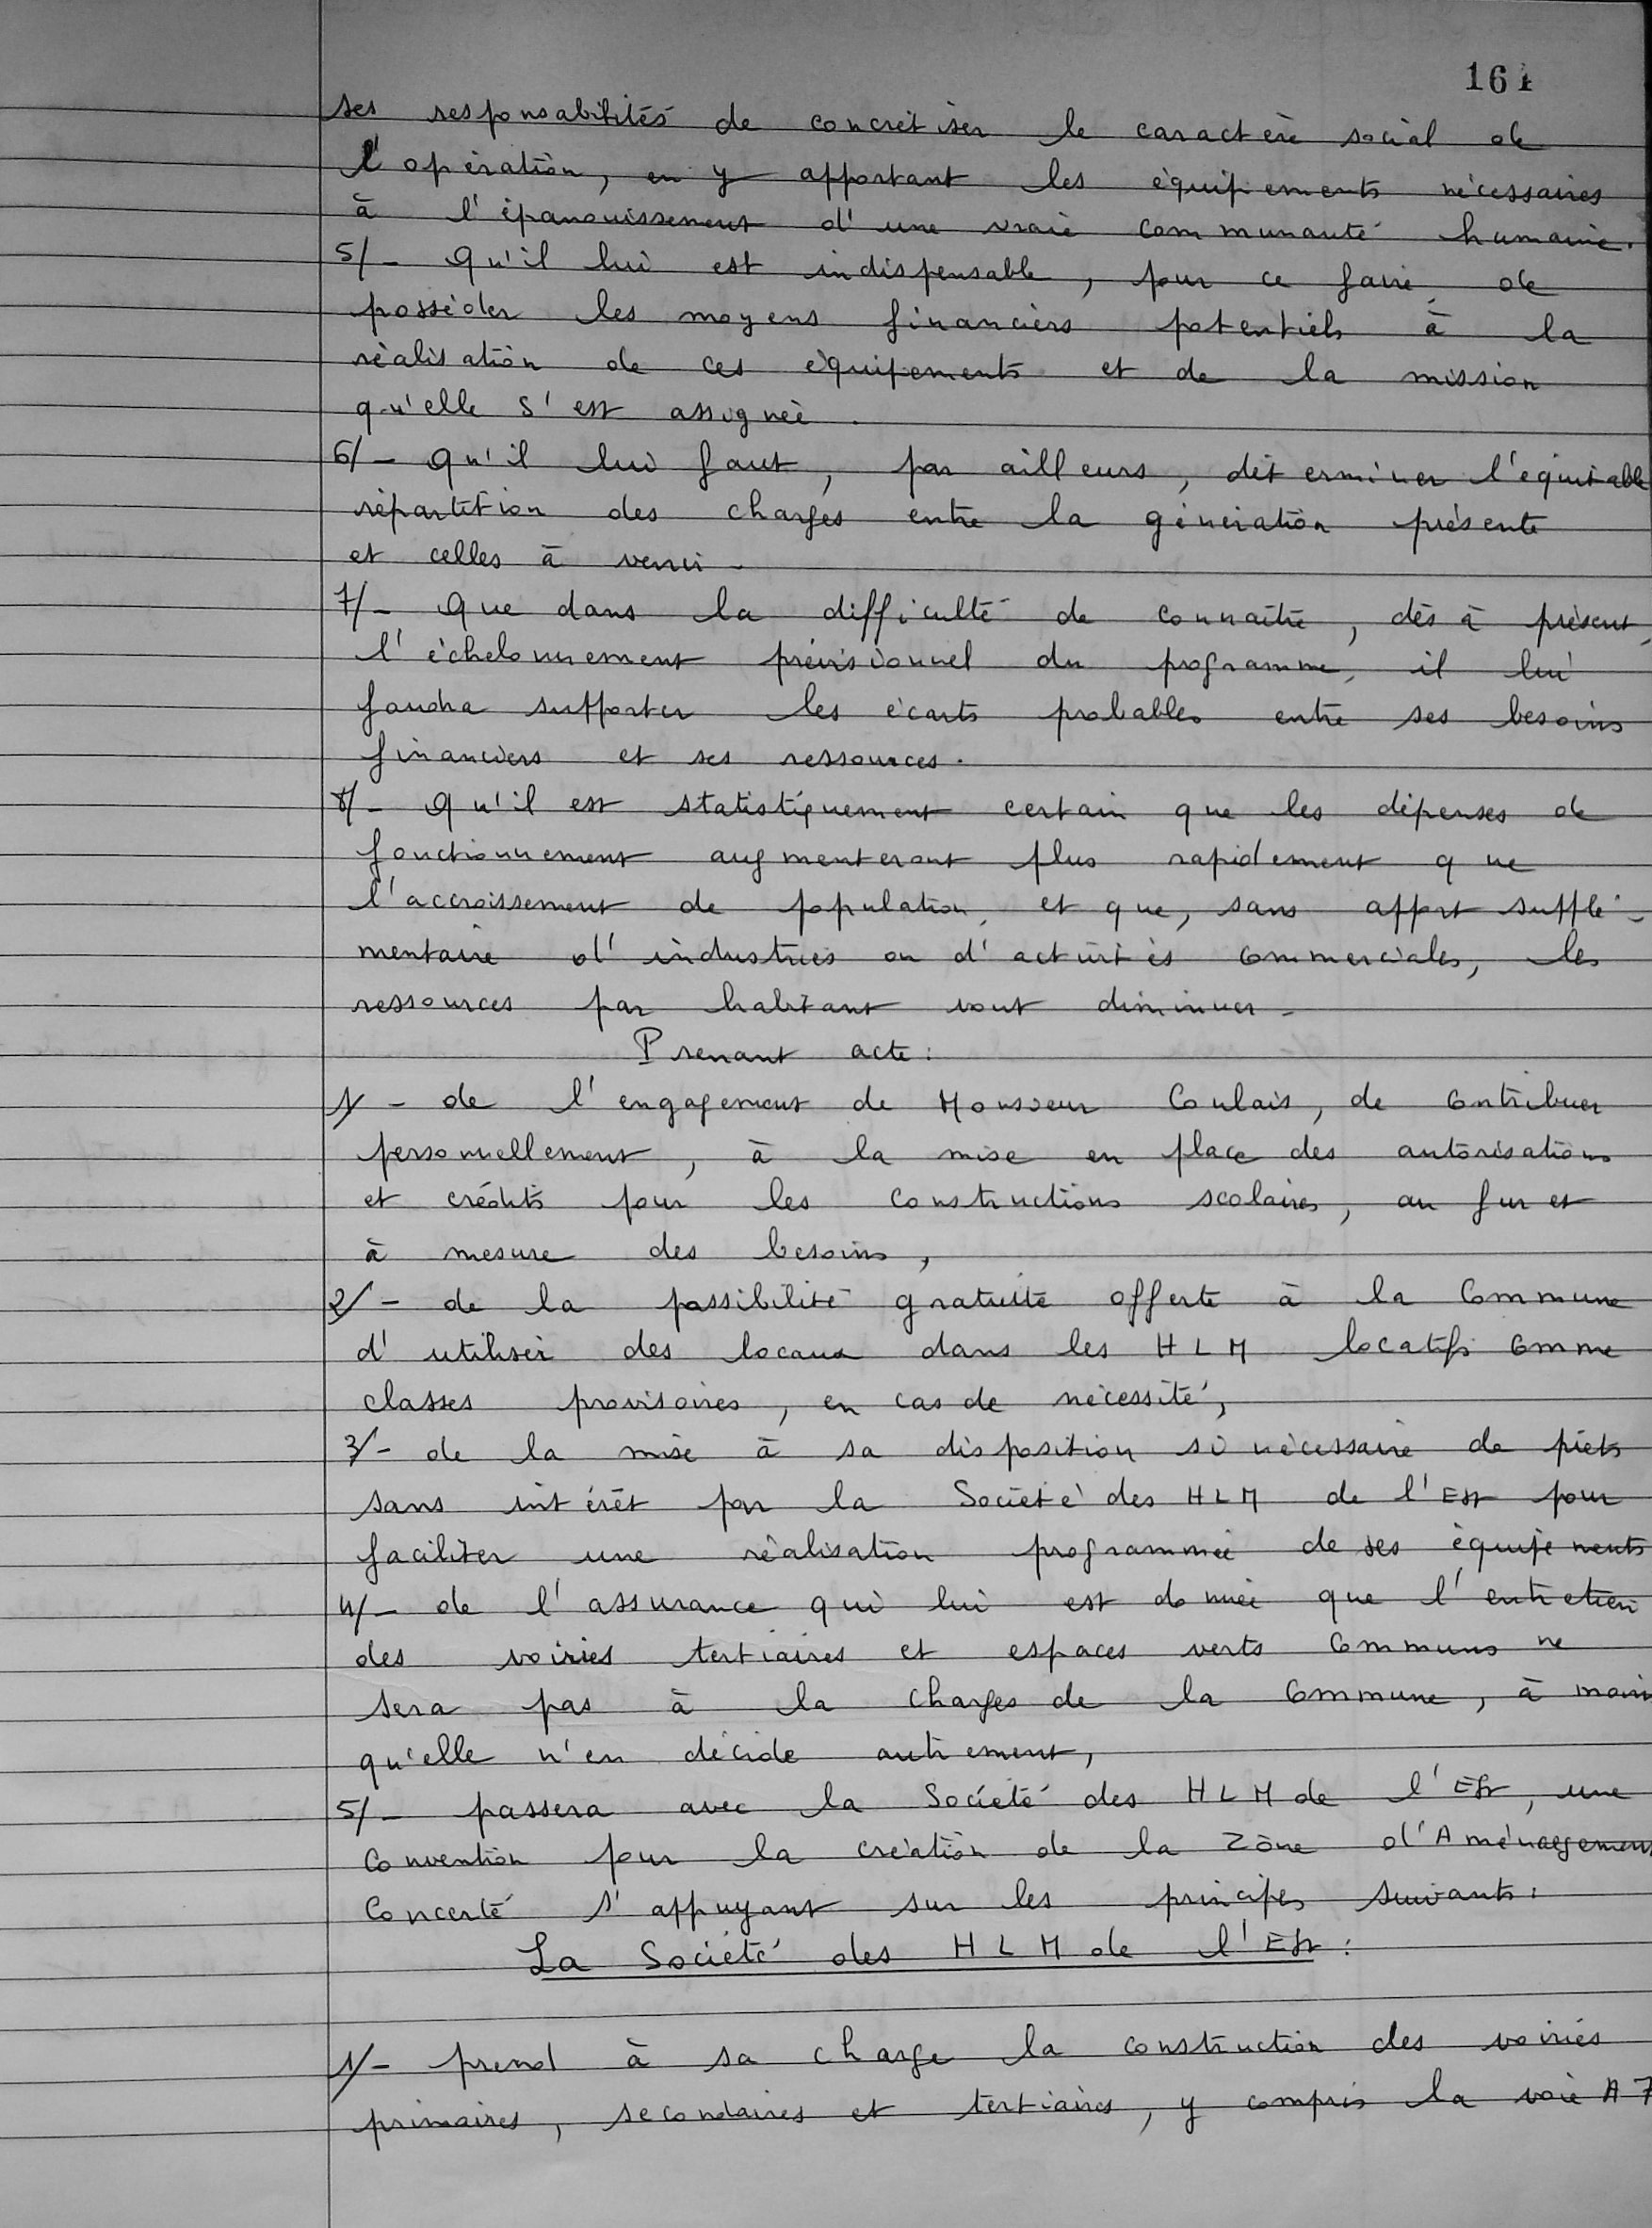 161
ses responsabilités de concrétiser le caractère social de
l'opération, en y apportant les équipements nécessaires
à l'épanouissement d'une vraie communauté humaine.
5/- Qu'il lui est indispensable, pour ce faire, de
posséder les moyens financiers potentiels à la
réalisation de ces équipements et de la mission
qu'elle s'est assignée.
6/- Qu'il lui faut, par ailleurs, déterminer l'équitable
répartition des charges entre la génération présente
et celles à venir.
7/- Que dans la difficulté de connaître, dès à présent,
l'échelonnement prévisionnel du programme, il lui
faudra supporter les écarts probables entre ses besoins
financiers et ses ressources.
8/- Qu'il est statistiquement certain que les dépenses de
fonctionnement augmenteront plus rapidement que
l'accroissement de population, et que, sans apport supplé-
mentaire d'industries ou d'activités commerciales, les
ressources par habitant vont diminuer.
Prenant acte :
1/- de l'engagement de Monsieur Coulais, de contribuer
personnellement, à la mise en place des autorisations
et crédits pour les constructions scolaires, au fur et
à mesure des besoins,
2/- de la possibilité gratuite offerte à la Commune
d'utiliser des locaux dans les HLM locatifs comme
classes provisoires, en cas de nécessité,
3/- de la mise à sa disposition si nécessaire de prêts
sans intérêt par la Société des HLM de l'Est pour
faciliter une réalisation programmée de ses équipements
4/- de l'assurance qui lui est donnée que l'entretien
des voiries tertiaires et espaces verts communs ne
sera pas à la charges de la Commune, à moins
qu'elle n'en décide autrement,
5/- passera avec la Société des HLM de l'Est, une
convention pour la création de la Zône d'Aménagement
Concerté s'appuyant sur les principes suivants :
La Société des HLM de l'Est :
1/- prend à sa charge la construction des voiries
primaires, secondaires et tertiaires, y compris la voie A7